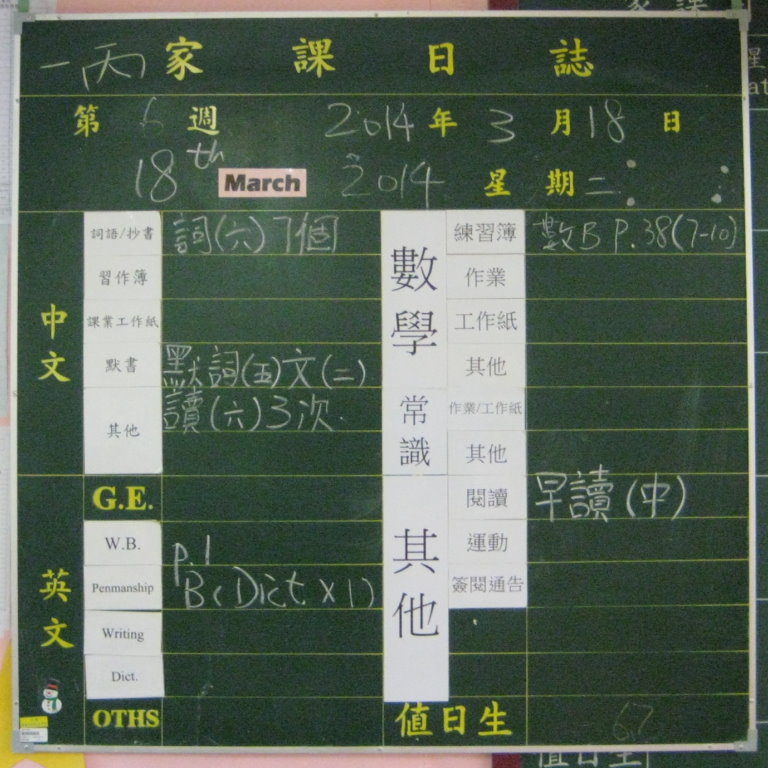 一丙 家課日誌
第 6 週 2014 年 3 月 18 日
18th March 2014 星期二
中文
詞語/抄書 詞(六)7個
習作簿
課業工作紙
默書 默詞(五)文(二)
其他 讀(六)3次.
英文
G.E.
W.B. p.1
Penmanship B(Dict. x1)
Writing
Dict.
OTHS
數學
練習簿 數B P.38(7-10)
作業
工作紙
其他
常識
作業/工作紙
其他
其他
閱讀 早讀(中)
運動
簽閱通告
值日生
值日生